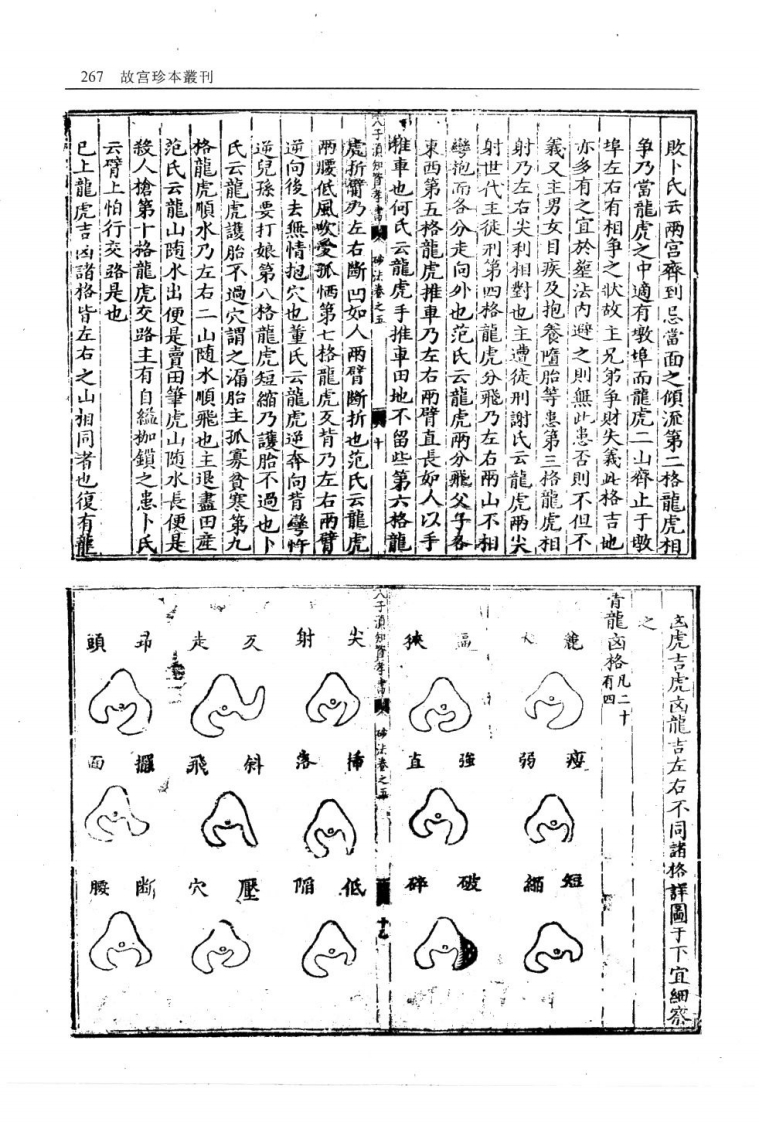 267 故宮珍本叢刊
敗卜氏云兩宮齊到忌當面之傾流第二格龍虎相
爭乃當龍虎之中適有墩埠而龍虎二山齊止于墩
埠左右有相爭之狀故主兄弟爭財失義此格吉地
亦多有之宜於塟法內避之則無此患否則不但不
義又主男女目疾及抱養墮胎等患第三格龍虎相
射乃左右尖利相對也主遭徒刑謝氏云龍虎兩尖
射世代主徒刑第四格龍虎分飛乃左右兩山不相
彎抱而各分走向外也范氏云龍虎兩分飛父子各
東西第五格龍虎推車乃左右兩臂直長如人以手
推車也何氏云龍虎手推車田地不留些第六格龍
人子須知資孝書 砂法卷之五 十
虎折臂乃左右斷凹如人兩臂斷折也范氏云龍虎
兩腰低風吹愛孤悽第七格龍虎反背乃左右兩臂
逆向後去無情抱穴也董氏云龍虎逆奔向背彎忤
逆兒孫要打娘第八格龍虎短縮乃護胎不過也卜
氏云龍虎護胎不過穴謂之漏胎主孤寡貧寒第九
格龍虎順水乃左右二山随水順飛也主退盡田産
范氏云龍山随水出便是賣田筆虎山随水長便是
殺人槍第十格龍虎交路主有自縊枷鎖之患卜氏
云臂上怕行交路是也
已上龍虎吉凶諸格皆左右之山相同者也復有龍
凶虎吉虎凶龍吉左右不同諸格詳圖于下宜細察
之
青龍凶格凡二十有四
麄大
瘦弱
短縮
逼狹
強直
破碎
人子須知資孝書 砂法卷之五 十一
尖射
插落
低陷
反走
斜飛
壓穴
昂頭
擺面
斷腰